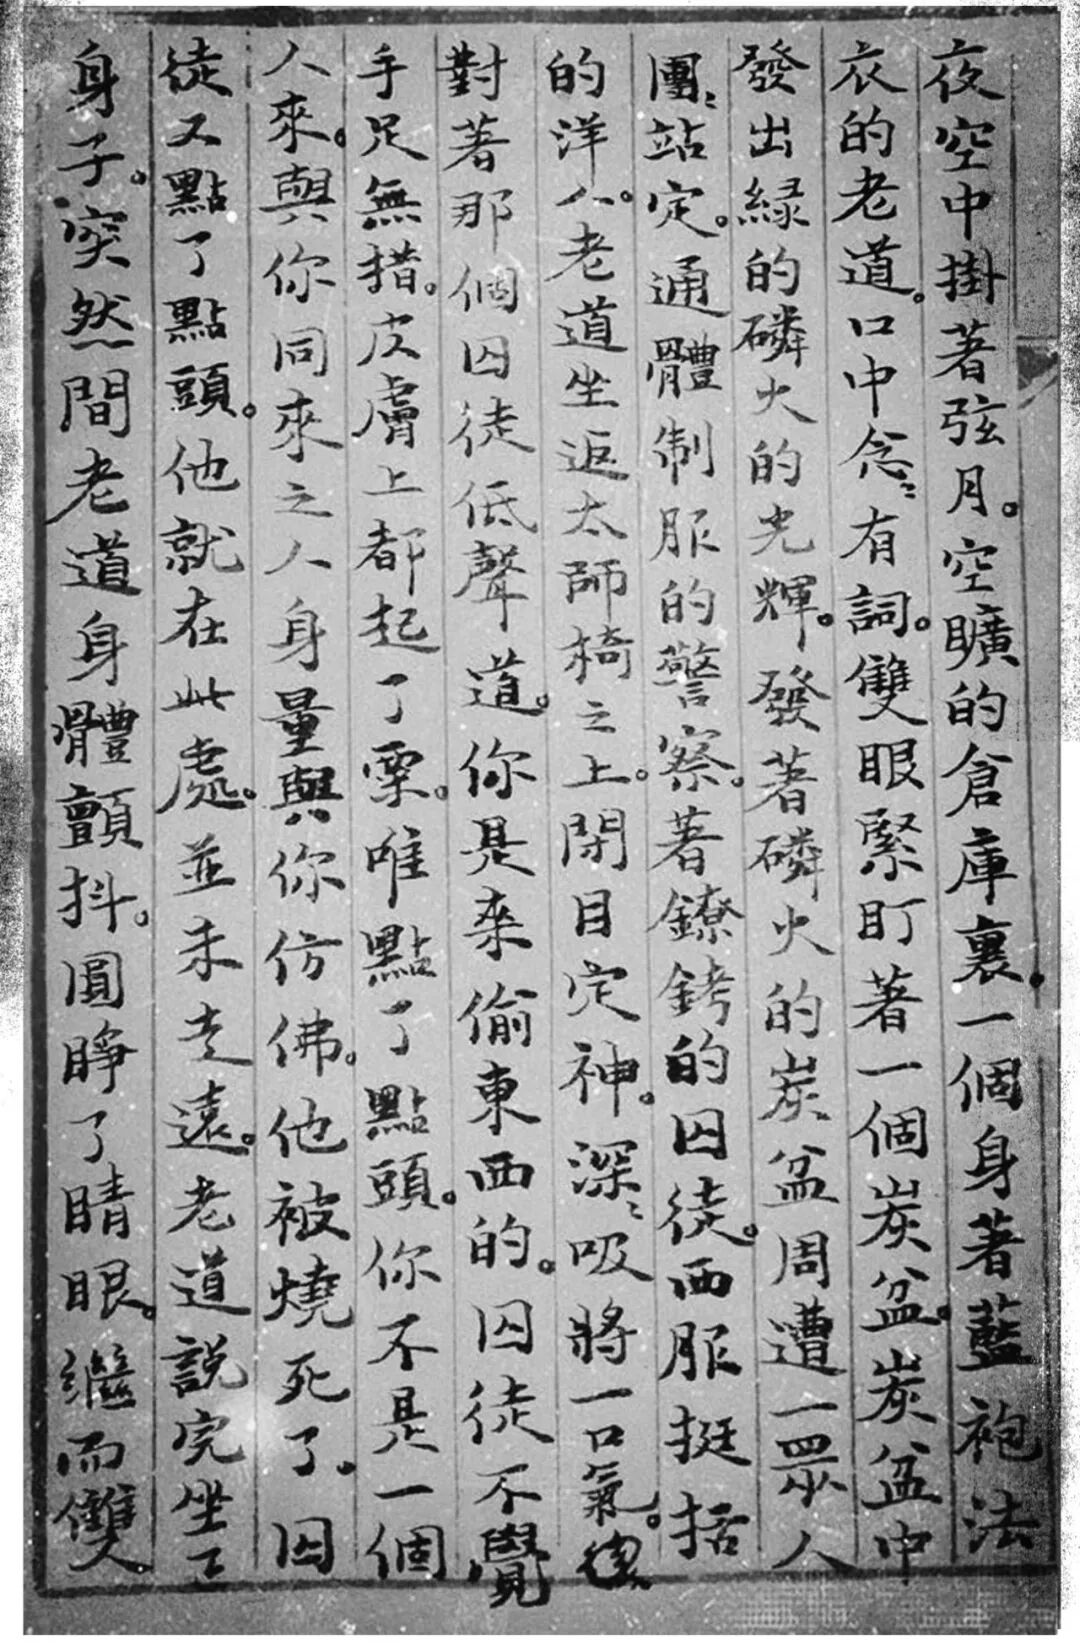 夜空中掛著弦月。空曠的倉庫裏。一個身著藍袍法
衣的老道。口中念〻有詞。雙眼緊盯著一個炭盆。炭盆中
發出緑的磷火的光輝。發著磷火的炭盆周遭一眾人
團〻站定。通體制服的警察。著鐐銬的囚徒。西服挺括
的洋人。老道坐返太師椅之上。閉目定神。深〻吸將一口氣。復
對著那個囚徒低聲道。你是来偷東西的。囚徒不覺
手足無措。皮膚上都起了栗。唯點了點頭。你不是一個
人來。與你同來之人身量與你仿佛。他被燒死了。囚
徒又點了點頭。他就在此處。並未走遠。老道説完坐下
身子。突然間老道身體顫抖。圓睜了睛眼。繼而雙